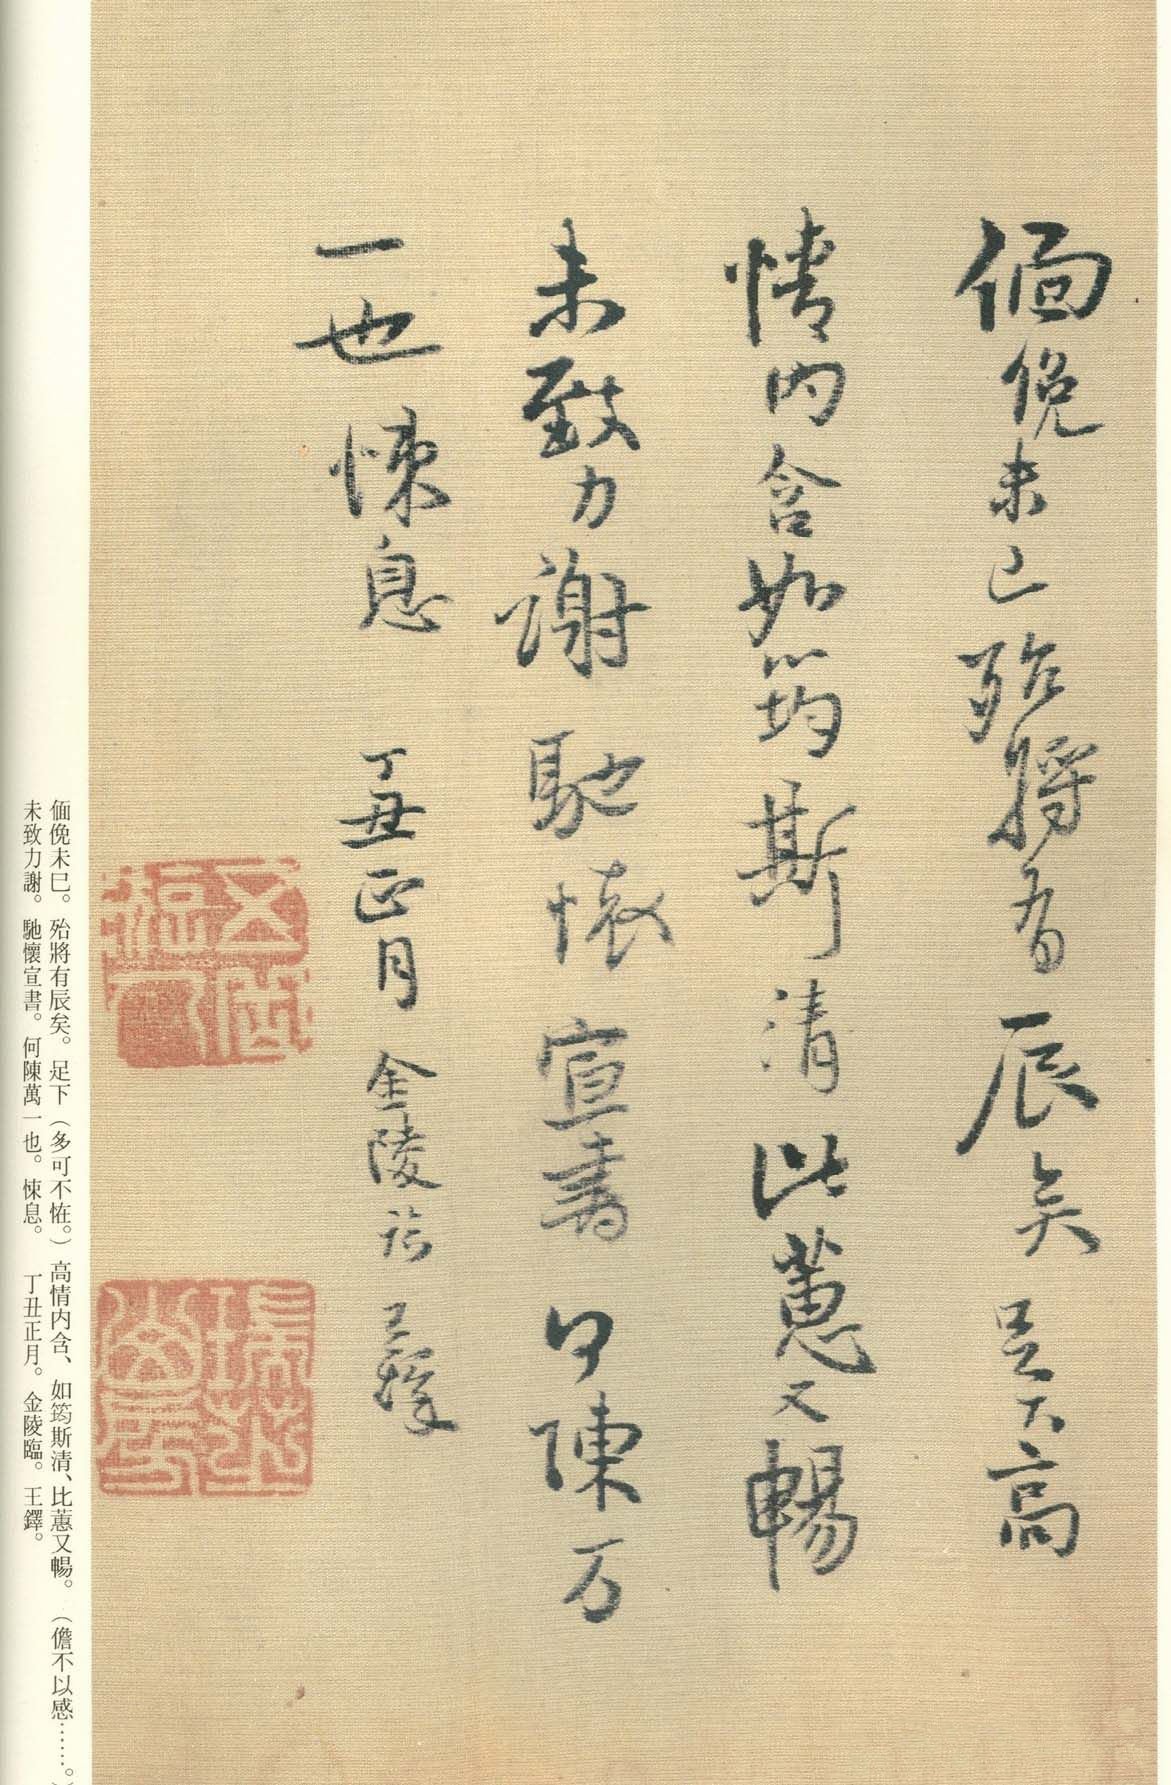 偭俛未已殆將有辰矣足下高
情内含如筠斯清比蕙又暢
未致力謝馳懷宣書何陳万
一也悚息 丁丑正月金陵臨王鐸
偭俛未巳。殆將有辰矣。足下（多可不恠。）高情内含、如筠斯清、比蕙又暢。（儋不以感……。）
未致力謝。馳懷宣書。何陳萬一也。悚息。 丁丑正月。金陵臨。王鐸。